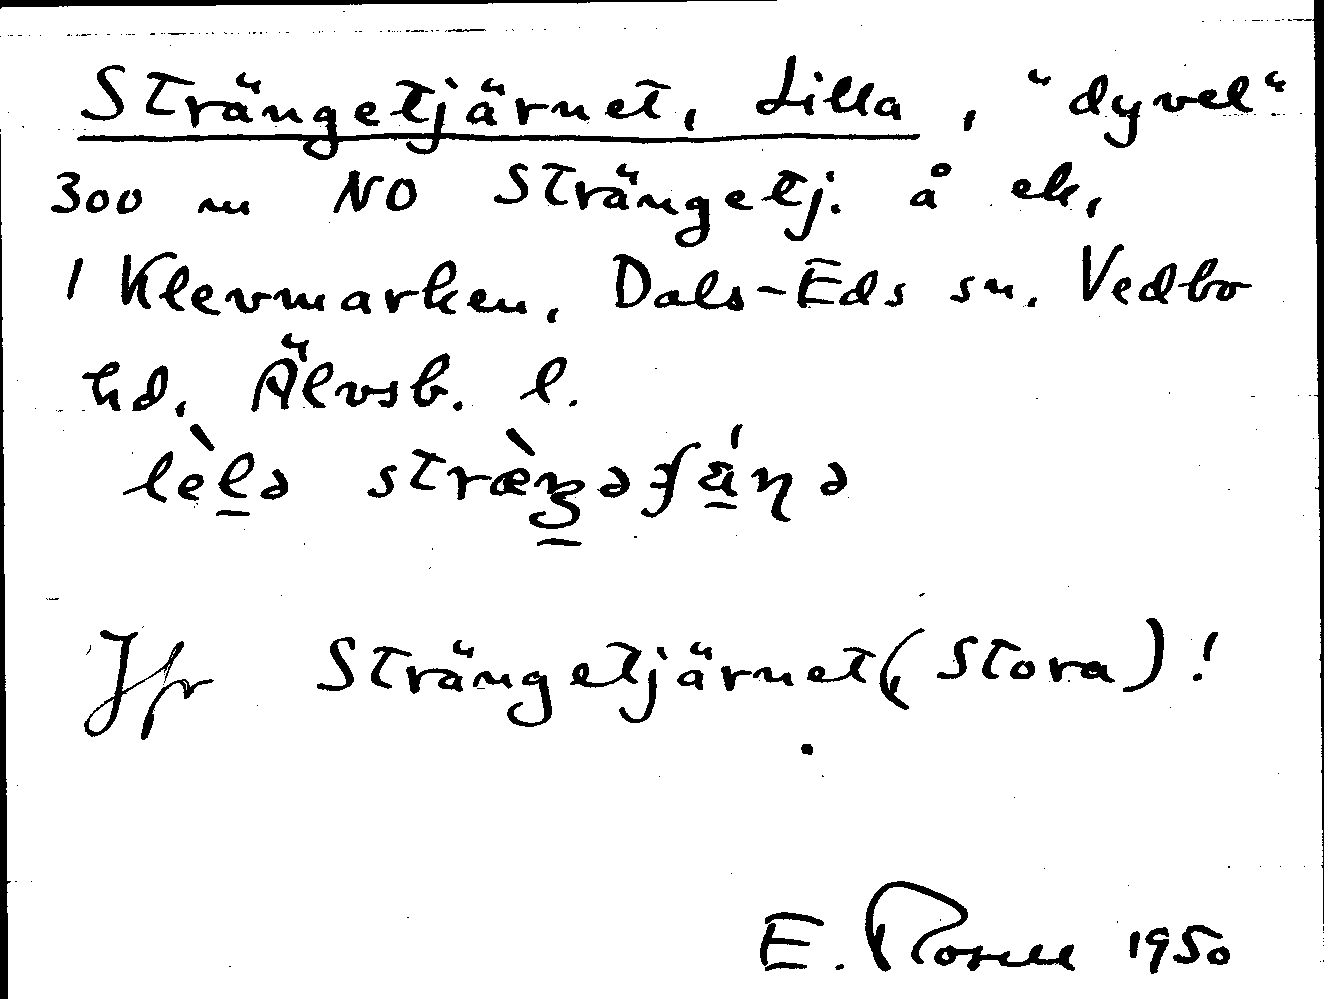 Strängetjärnet, Lilla, "dyvel"
300 m NO Strängetj. å ek,
1 Klevmarken, Dals-Eds sn. Vedbo
hd. Älvsb. l.
Jfr Strängetjärnet (Stora)!
E. Rosell 1950